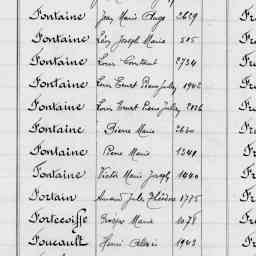 Fontaine Jean Marie Ange 2629
Fontaine Léon Joseph Marie 505
Fontaine Louis Constant 2734
Fontaine Louis Ernest Pierre Julien 1942
Fontaine Louis Ernest Pierre Julien 2026
Fontaine Pierre Marie 2620
Fontaine Pierre Marie 1348
Fontaine Victor Marie Joseph 1440
Fortain Amand Jules Théodore 1775
Fortecoiffe Marie 1078
Foucault Henri Alexis 1943